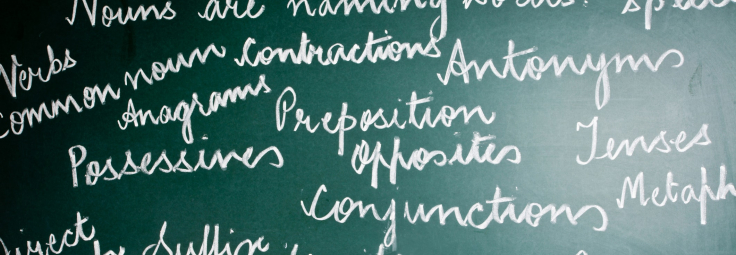 Nouns are naming words.
Verbs
Common noun contractions Antonyms
Anagrams Preposition
Possessives Opposites Tenses
Conjunctions Metaph
Direct
Suffix